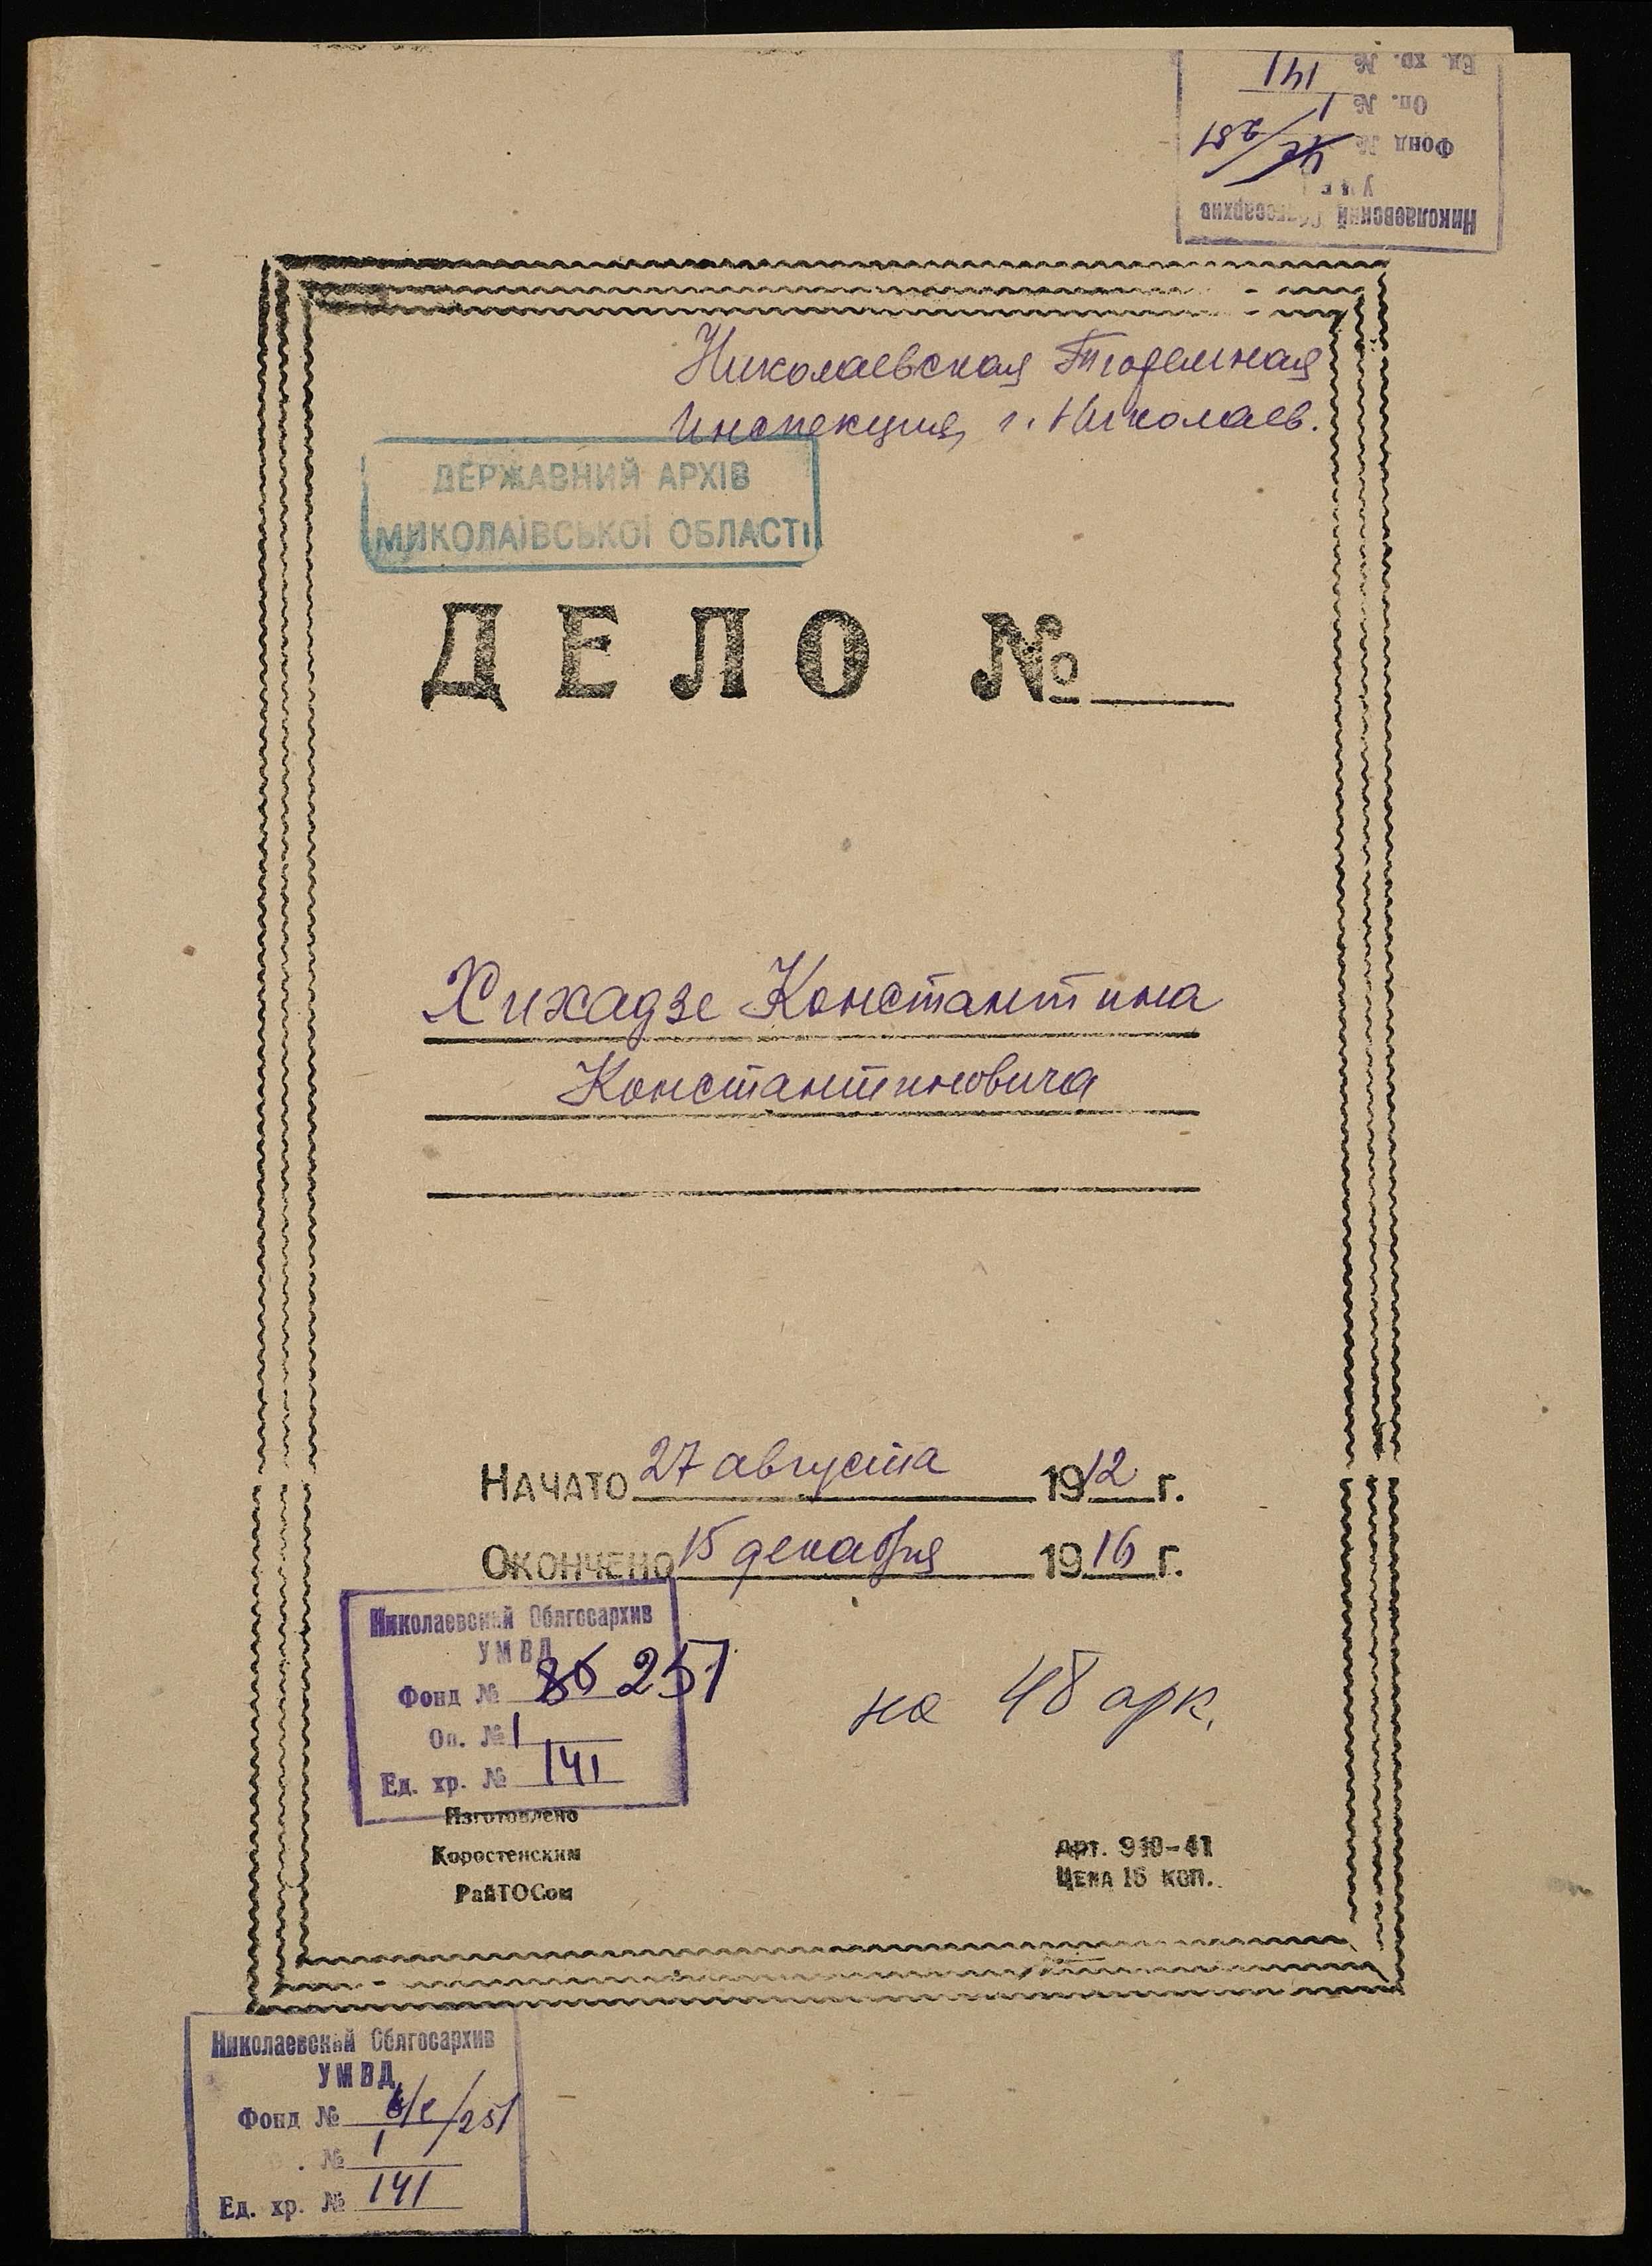 Ед. хр. № 141
Оп. № 1
Фонд № 251
Николаевский Облгосархив
Николаевская Тюремная
Инспекция, г. Николаев.
ДЕРЖАВНИЙ АРХІВ
МИКОЛАЇВСЬКОЇ ОБЛАСТІ
ДЕЛО №
Хихадзе Константина
Константиновича
Начато 27 августа 1912 г.
Окончено 15 декабря 1916 г.
Николаевский Облгосархив
УМВД
Фонд № 251
Оп. № 1
Ед. хр. № 141
на 48 арк.
Изготовлено
Коростенским
РайТОСом
Арт. 910-41
Цена 15 коп.
Николаевский Облгосархив
УМВД
Фонд № /251
№ 1
Ед. хр. № 141